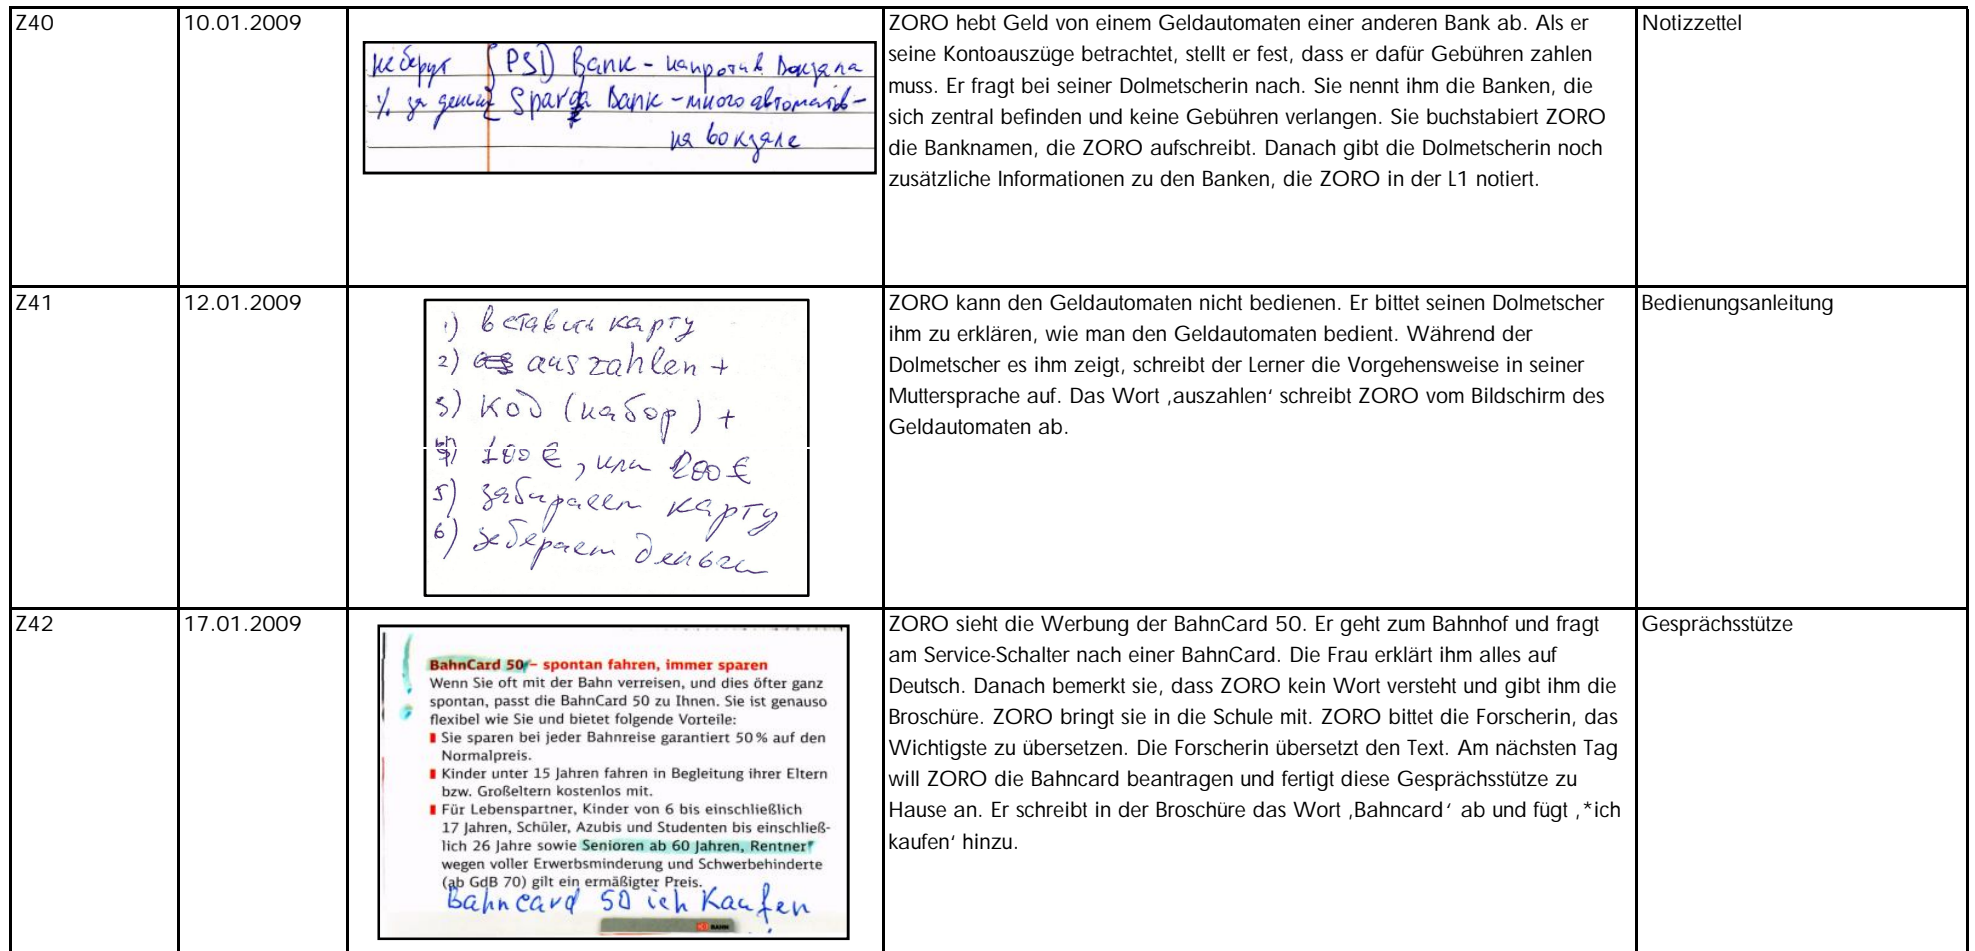 Z40
10.01.2009
не берут { PSD Bank - напротив вокзала
% за деньги { Sparda Bank - много автоматов -
на вокзале
ZORO hebt Geld von einem Geldautomaten einer anderen Bank ab. Als er
seine Kontoauszüge betrachtet, stellt er fest, dass er dafür Gebühren zahlen
muss. Er fragt bei seiner Dolmetscherin nach. Sie nennt ihm die Banken, die
sich zentral befinden und keine Gebühren verlangen. Sie buchstabiert ZORO
die Banknamen, die ZORO aufschreibt. Danach gibt die Dolmetscherin noch
zusätzliche Informationen zu den Banken, die ZORO in der L1 notiert.
Notizzettel
Z41
12.01.2009
1) вставить карту
2) auszahlen +
3) код (набор) +
4) 100 €, или 200 €
5) забираем карту
6) заберает деньги
ZORO kann den Geldautomaten nicht bedienen. Er bittet seinen Dolmetscher
ihm zu erklären, wie man den Geldautomaten bedient. Während der
Dolmetscher es ihm zeigt, schreibt der Lerner die Vorgehensweise in seiner
Muttersprache auf. Das Wort ‚auszahlen‘ schreibt ZORO vom Bildschirm des
Geldautomaten ab.
Bedienungsanleitung
Z42
17.01.2009
!
BahnCard 50 – spontan fahren, immer sparen
Wenn Sie oft mit der Bahn verreisen, und dies öfter ganz
spontan, passt die BahnCard 50 zu Ihnen. Sie ist genauso
flexibel wie Sie und bietet folgende Vorteile:
Sie sparen bei jeder Bahnreise garantiert 50 % auf den
Normalpreis.
Kinder unter 15 Jahren fahren in Begleitung ihrer Eltern
bzw. Großeltern kostenlos mit.
Für Lebenspartner, Kinder von 6 bis einschließlich
17 Jahren, Schüler, Azubis und Studenten bis einschließ-
lich 26 Jahre sowie Senioren ab 60 Jahren, Rentner
wegen voller Erwerbsminderung und Schwerbehinderte
(ab GdB 70) gilt ein ermäßigter Preis.
Bahncard 50 ich Kaufen
BAHN
ZORO sieht die Werbung der BahnCard 50. Er geht zum Bahnhof und fragt
am Service-Schalter nach einer BahnCard. Die Frau erklärt ihm alles auf
Deutsch. Danach bemerkt sie, dass ZORO kein Wort versteht und gibt ihm die
Broschüre. ZORO bringt sie in die Schule mit. ZORO bittet die Forscherin, das
Wichtigste zu übersetzen. Die Forscherin übersetzt den Text. Am nächsten Tag
will ZORO die Bahncard beantragen und fertigt diese Gesprächsstütze zu
Hause an. Er schreibt in der Broschüre das Wort ‚Bahncard‘ ab und fügt ‚*ich
kaufen‘ hinzu.
Gesprächsstütze